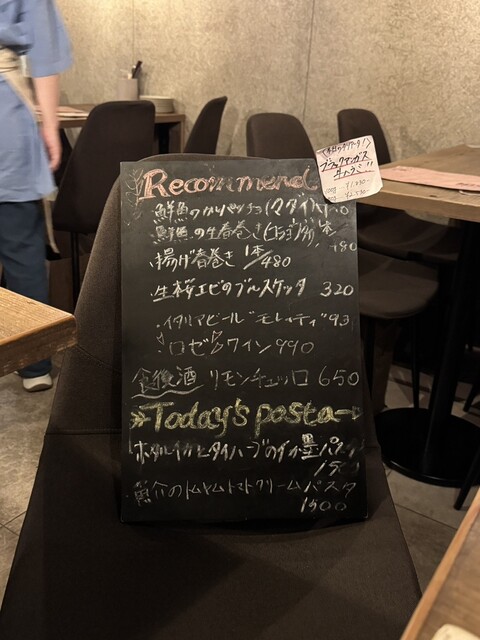 Recommend
鮮魚のカルパッチョ(マダイ)
鮮魚の生春巻き 1本
揚げ春巻き 1本/480
生桜エビのブルスケッタ 320
イタリアビール"モレッティ"
ロゼワイン 990
食後酒 リモンチェッロ 650
Today's pasta
ホタルイカとタイハーブの
パスタ
魚介のトムヤムトマトクリームパスタ
1500
ブラックアンガス